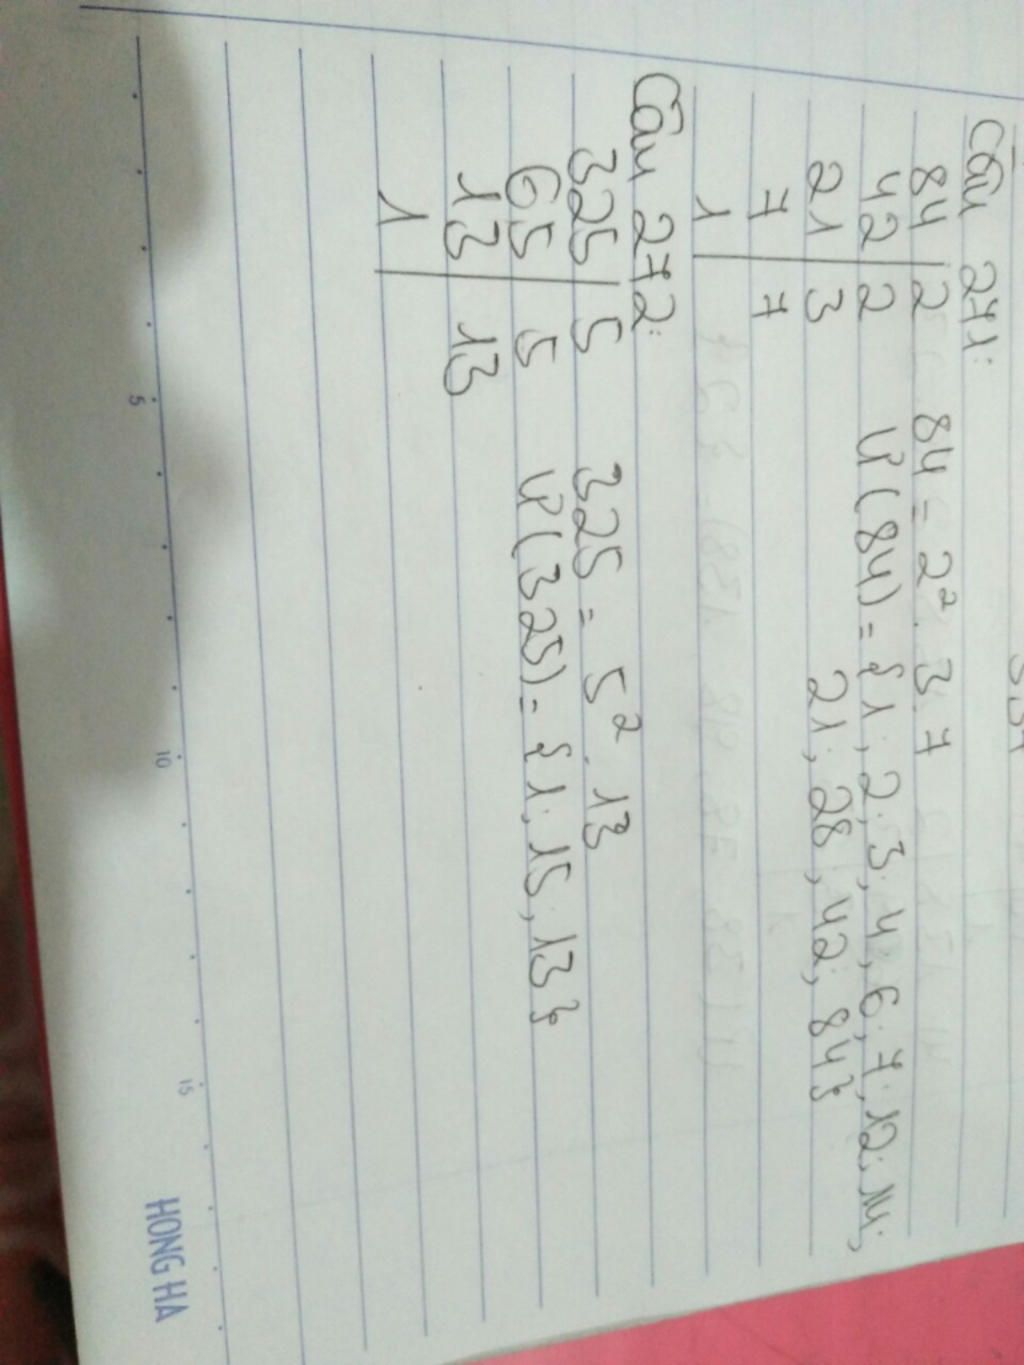 Câu 271:
84 | 2 84 = 2². 3. 7
42 | 2 Ư(84) = {1; 2; 3; 4; 6; 7; 12; 14;
21 | 3 21; 28; 42; 84}
7 | 7
1
Câu 272:
325 | 5 325 = 5². 13
65 | 5 Ư(325) = {1; 15; 13}
13 | 13
1
5 10 15
HONG HA